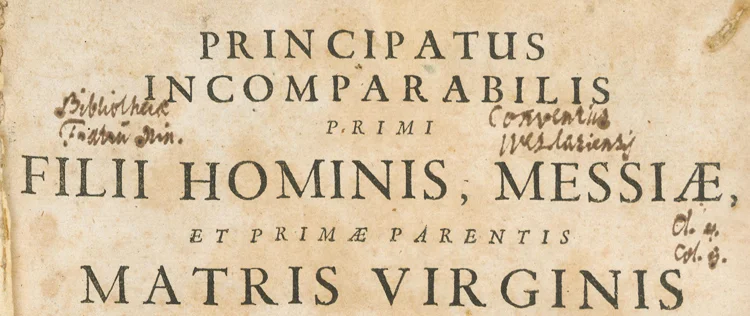 PRINCIPATUS
INCOMPARABILIS
Bibliothecæ
Conventus
PRIMI
Fratrū Min.
Wetzlariensis
FILII HOMINIS, MESSIÆ,
Cl. 4.
ET PRIMÆ PARENTIS
Col. 3.
MATRIS VIRGINIS